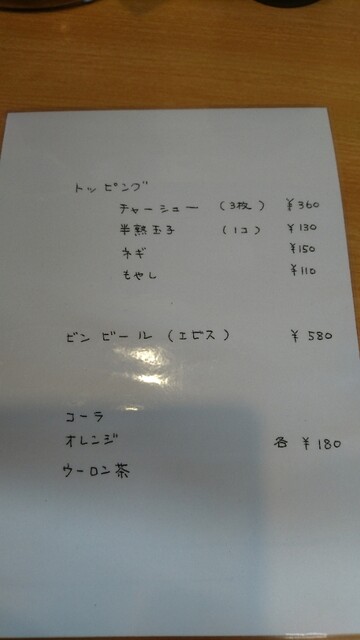 トッピング
チャーシュー (3枚) ¥360
半熟玉子 (1コ) ¥130
ネギ ¥150
もやし ¥110
ビンビール (エビス) ¥580
コーラ
オレンジ 各 ¥180
ウーロン茶